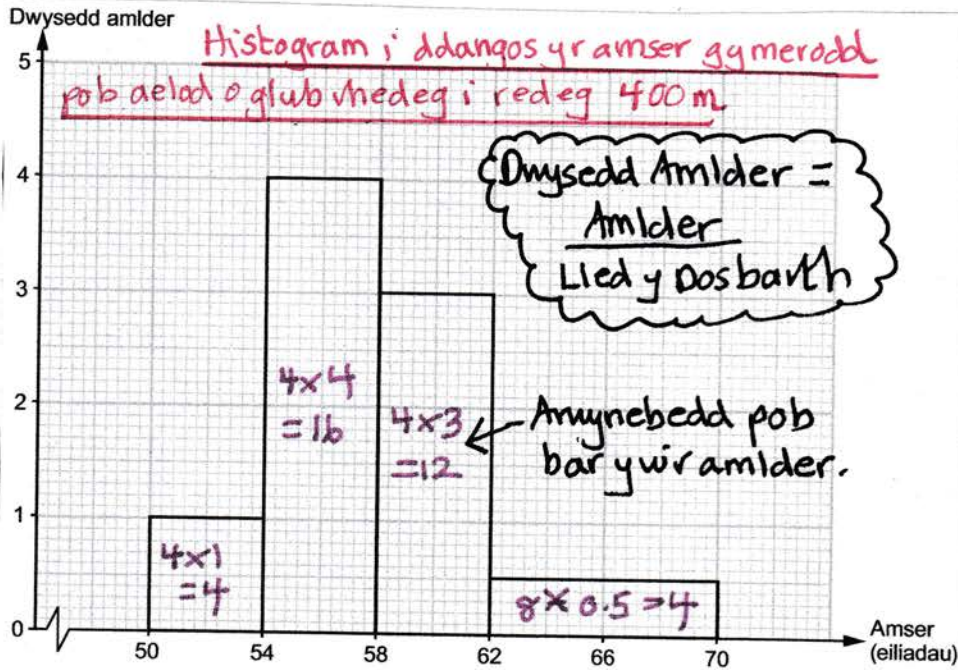 Dwysedd amlder
Histogram i ddangos yr amser gymerodd
pob aelod o glub rhedeg i redeg 400m
5
4
3
2
1
0
Dwysedd Amlder =
Amlder
Lled y Dosbarth
4×4
=16
4×3
=12
Arwynebedd pob
bar yw'r amlder.
4×1
=4
8×0.5=4
50
54
58
62
66
70
Amser
(eiliadau)